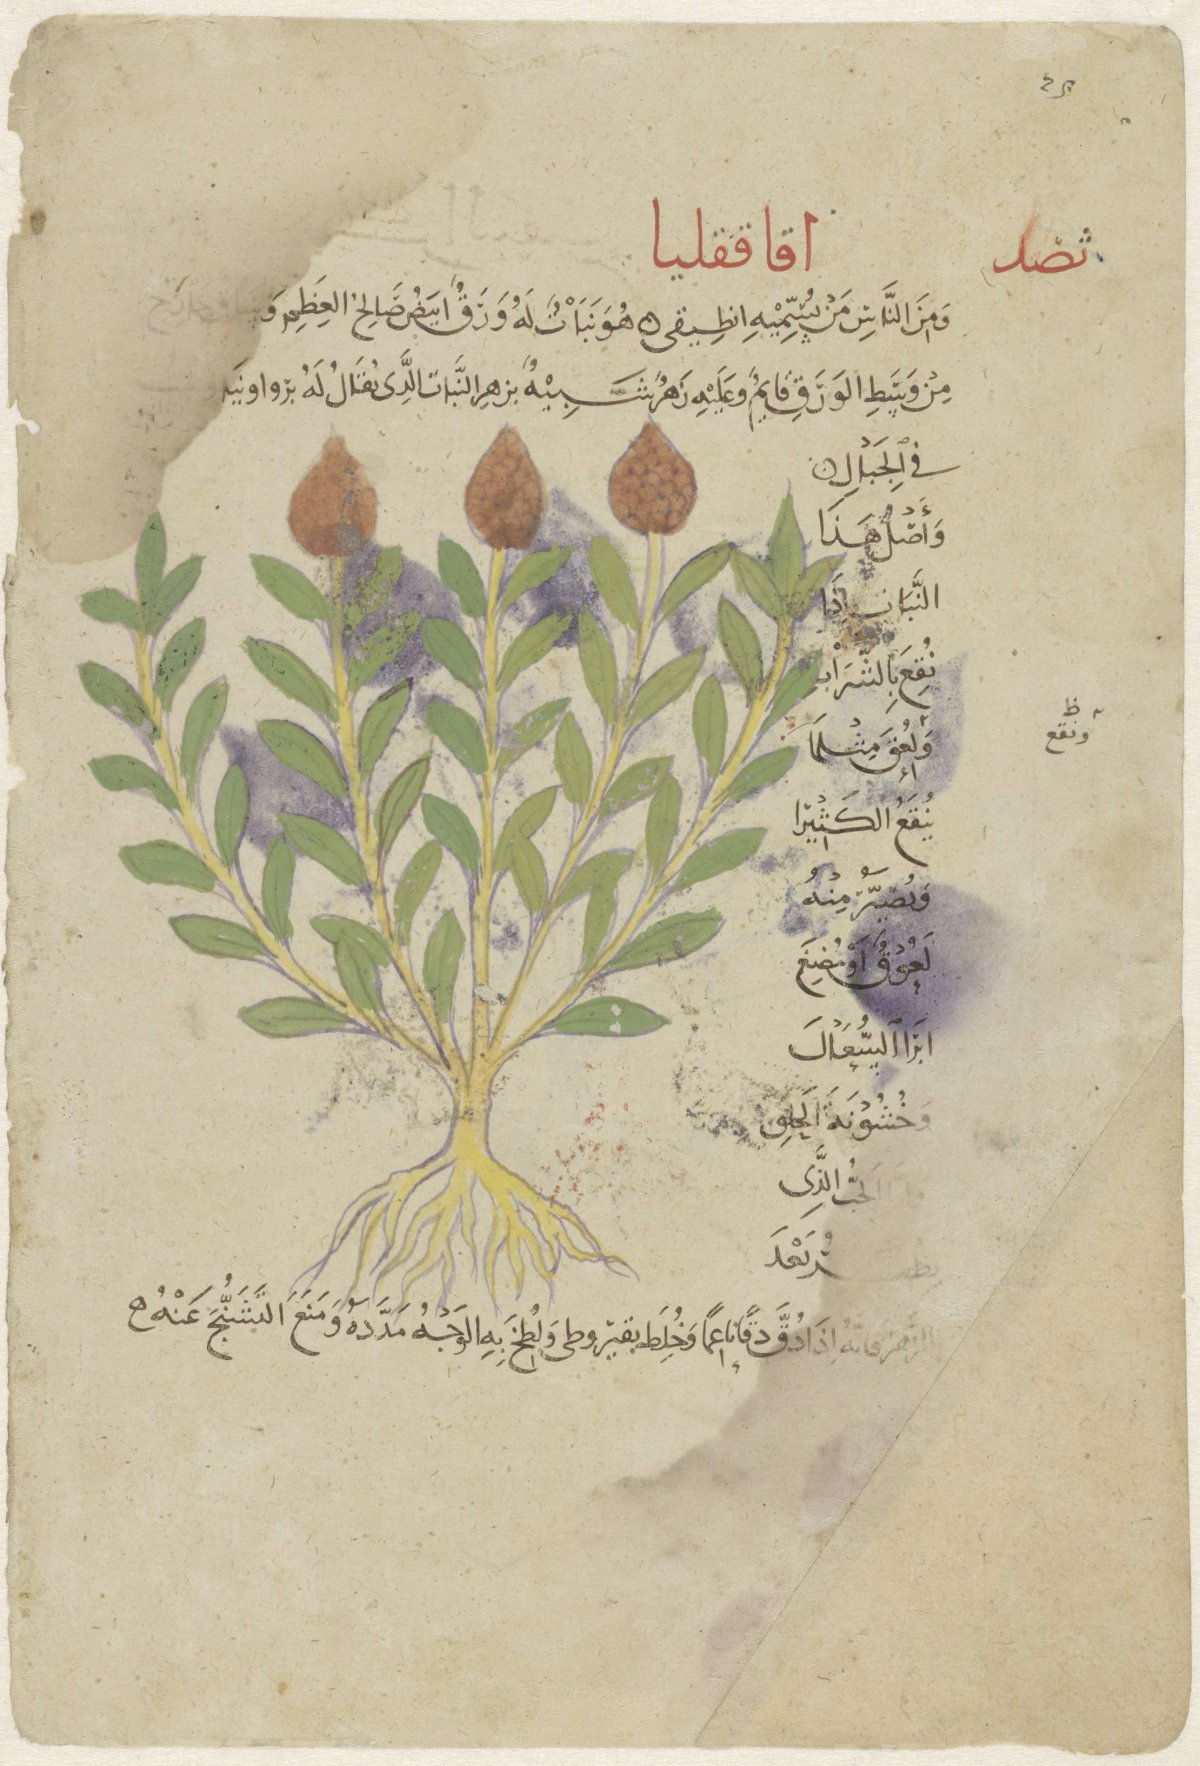 تصد
اقاقفليا
وَمِنَ النَّاسِ مَنْ يُسَمِّيْهِ انطيقى ه هُوَ نَبَاتٌ لَهُ وَرَقٌ ابيَضُ صَالِحُ العِظَمِ
مِنْ وَسَطِ الوَرَقِ قَايِمٌ وعَلَيْهِ زَهْرٌ شَبِيْهٌ بزهر النَّبات الَّذِى يُقَالُ لَهُ برواونيه
فى الجَبَالِ ه
وَأَصْلُ هَذَا
النَّبَات إِذَا
نُقِعَ بِالشَّرَاب
وَلُعِقَ مِثْلمَا
يُنْقَعُ الكَثِيْرَا
وَيُصَيَّر مِنْهُ
لَعُوْقٌ اَوْ مُضِغَ
ابَرَا السُّعَالَ
وَخُشُوْنَةَ الحَلقِ
الحَبُّ الَّذِى
يظهر بَعْدَ
الزهر فَانّهُ اِذَا دُقَّ دَقًّا نَاعِمًا وَخُلِطَ بقيروطى وَلُطِخَ بِهِ الوَجْهُ مَدَّدَهُ وَمَنَعَ التَّشَنُّجَ عَنْهُ ه
ظ
ونقع